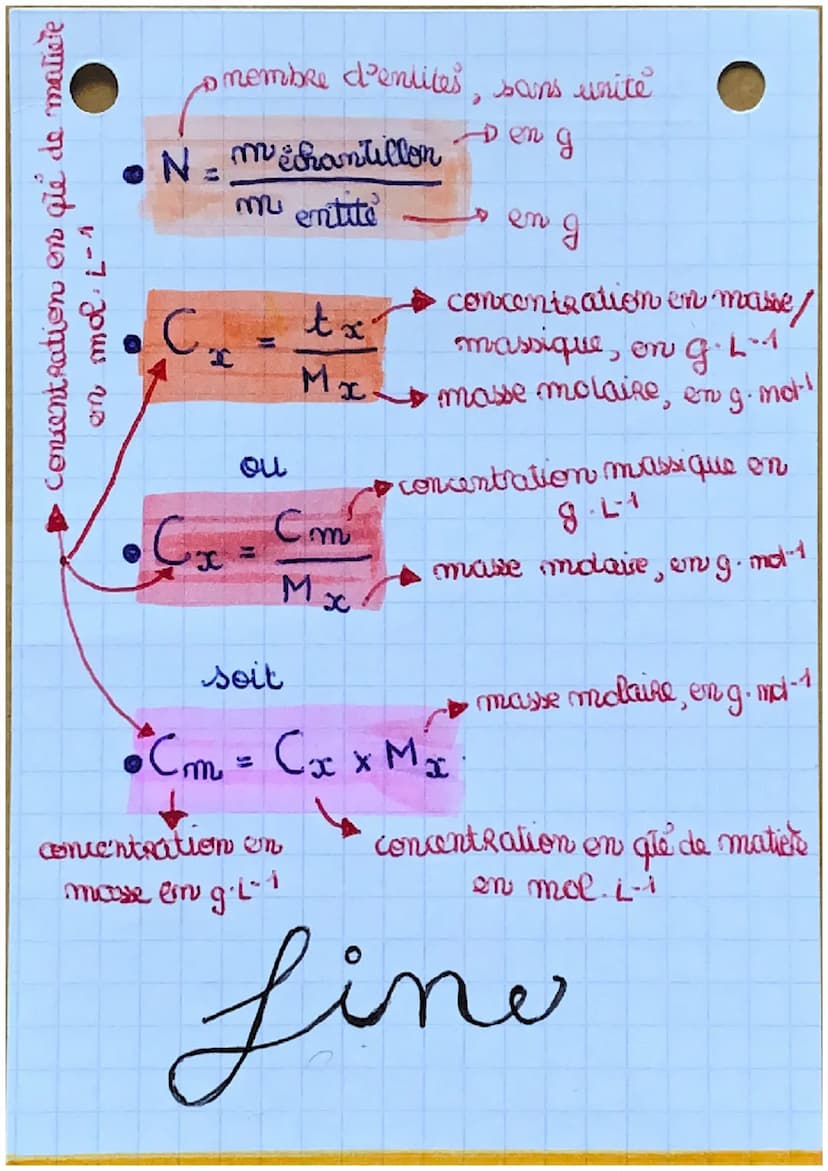 concentration en qté de matière
en mol. L-1
membre d'entités, sans unité
• N = m échantillon / m entité
en g
en g
• Cx = tx / Mx
concentration en masse/
massique, en g. L-1
masse molaire, en g. mol-1
ou
• Cx = Cm / Mx
concentration massique en
g. L-1
masse molaire, en g. mol-1
soit
masse molaire, en g. mol-1
• Cm = Cx x Mx
concentration en
masse en g. L-1
concentration en qté de matière
en mol. L-1
fine